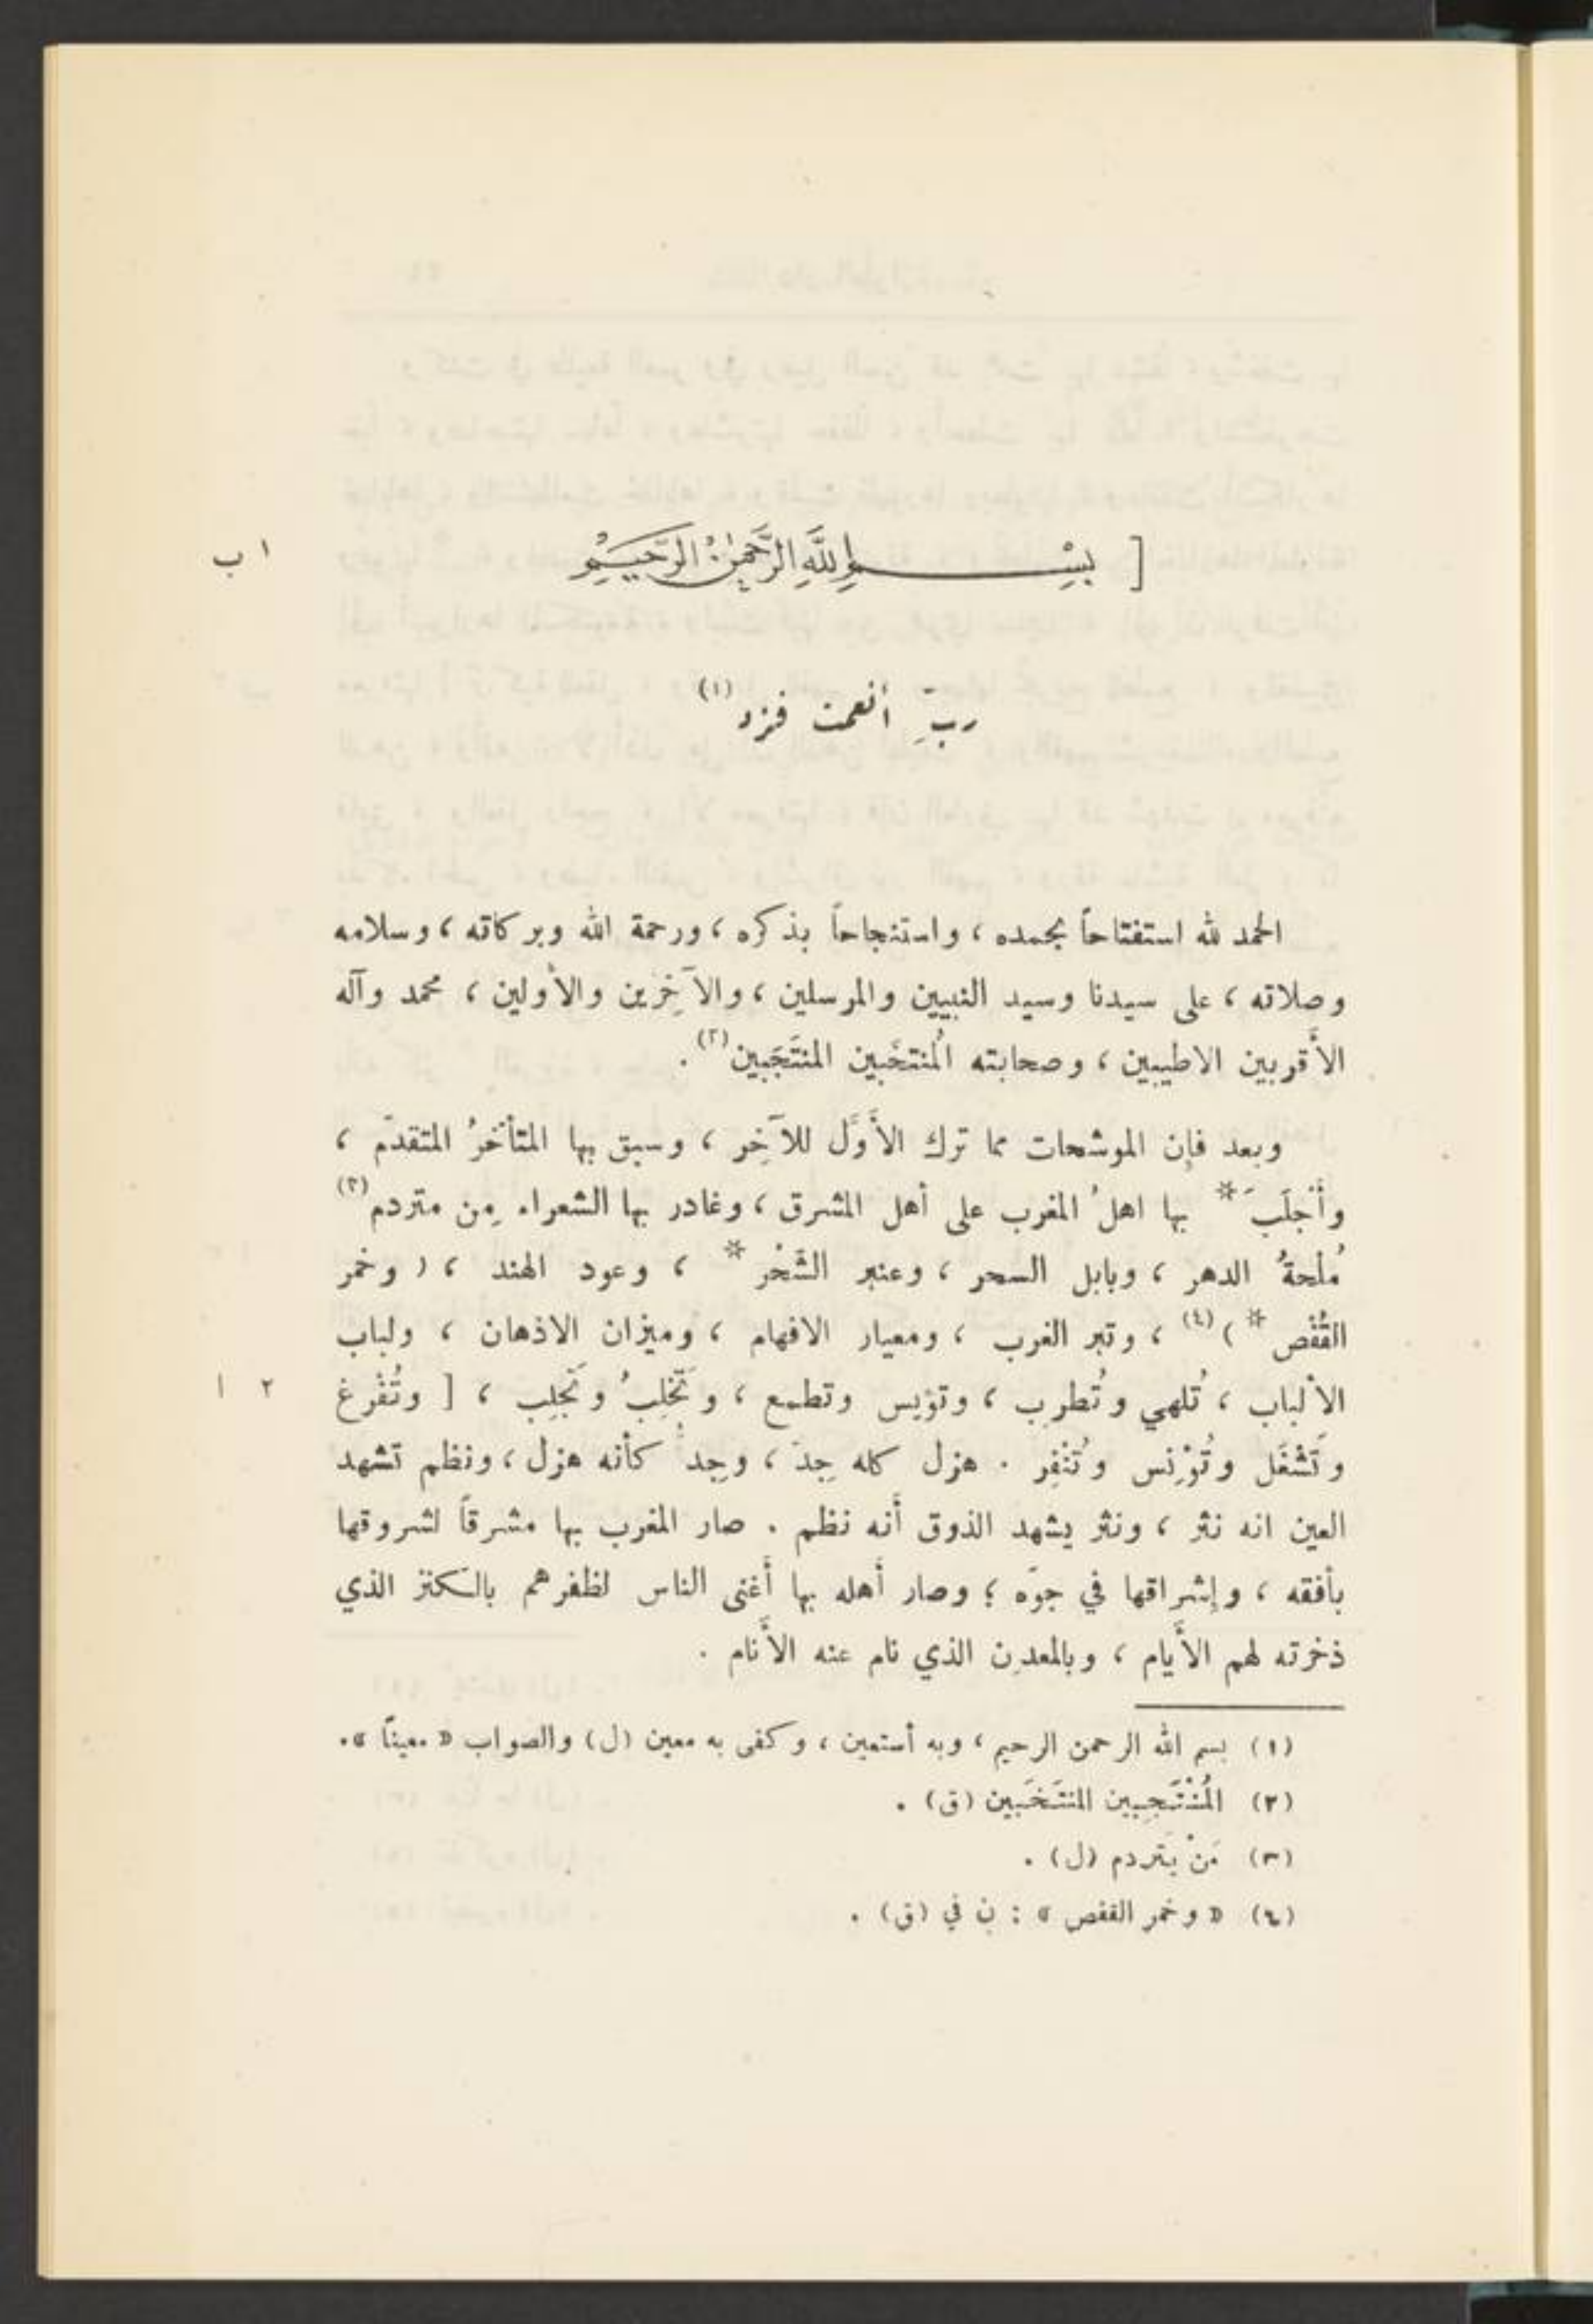 [ بِسْمِ اللَّهِ الرَّحْمٰنِ الرَّحِيمِ
١ ب
ربِّ أنعمت فزد (١)
الحمد لله استفتاحاً بحمده ، واستنجاحاً بذكره ، ورحمة الله وبركاته ، وسلامه
وصلاته ، على سيدنا وسيد النبيين والمرسلين ، والآخِرين والأولين ، محمد وآله
الأَقربين الاطيبين ، وصحابته المُنتخَبين المنتَجَبين (٢) .
وبعد فإن الموشحات مما ترك الأَوَّل للآخِر ، وسبق بها المتأخرُ المتقدّم ،
وأَجْلَبَ * بها اهلُ المغرب على أهل المشرق ، وغادر بها الشعراء مِن متردم (٣)
مُلْحةُ الدهر ، وبابل السحر ، وعنبر الشَّحْر * ، وعود الهند ، ( وخمر
القُفْص * ) (٤) ، وتبر الغرب ، ومعيار الافهام ، وميزان الاذهان ، ولباب
الألباب ، تُلهي وتُطرِب ، وتؤيس وتطمع ، وتَخْلِبُ وتَجْلِب ، [ وتُفْرغ
٢ ا
وتَشْغَل وتُؤْنِس وتُنْفِر . هزل كله جِدّ ، وجِدّ كأنه هزل ، ونظم تشهد
العين انه نثر ، ونثر يشهد الذوق أَنه نظم . صار المغرب بها مشرقاً لشروقها
بأفقه ، وإشراقها في جوّه ؛ وصار أَهله بها أَغنى الناس لظفرهم بالكنز الذي
ذخرته لهم الأَيام ، وبالمعدِن الذي نام عنه الأَنام .
(١) بسم الله الرحمن الرحيم ، وبه أستعين ، وكفى به معين (ل) والصواب « معيناً » .
(٢) المُنْتَجِبين المنتَخَبين (ق) .
(٣) مَنْ يَتردم (ل) .
(٤) « وخمر القفص » : ن في (ق) .